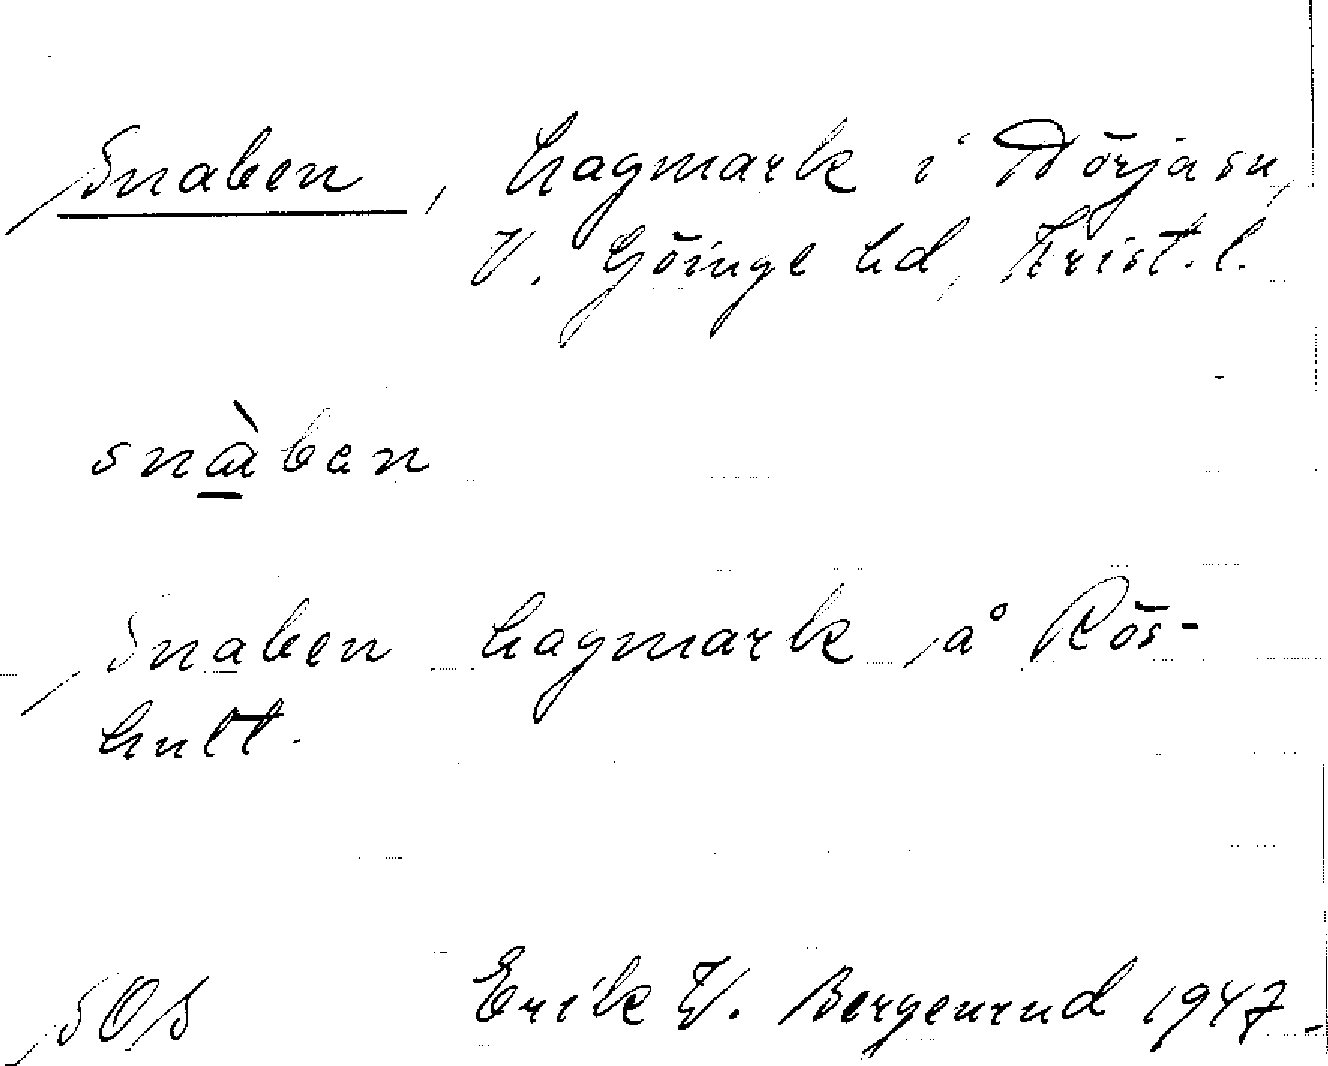 Snaben, hagmark i Nörja sn,
V. Göinge hd, Krist. l.
snàben
Snaben hagmark å Rös-
hult.
SOS Erik W. Bergenrud 1947.